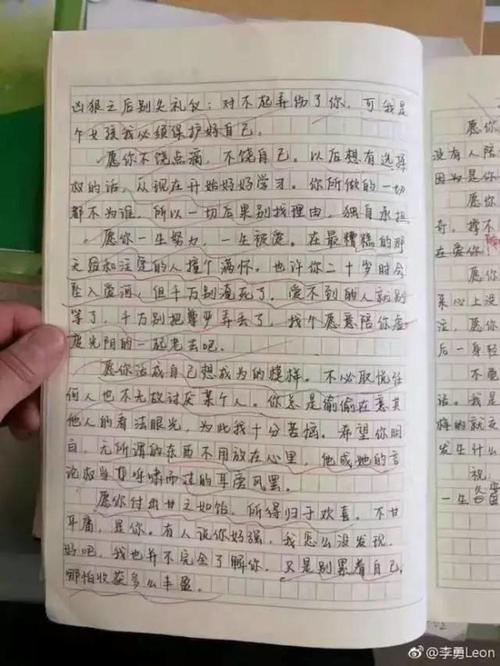 凶狠之后别失礼仪：对不起弄伤了你，可我是
个女孩我必须保护好自己。
愿你不饶点滴，不饶自己。以后想有选择
权的话，从现在开始好好学习。你所做的一切
都不为谁，所以一切后果别找理由，独自承担
愿你一生努力，一生被爱。在最糟糕的那
天后和注定的人撞个满怀。也许你二十岁时会
坠入爱河，但千万别淹死了，爱不到的人就别
等了，千万别把尊严弄丢了，找个愿意陪你虚
度光阴的一起老去吧。
愿你活成自己想成为的模样。不必取悦任
何人也不无故讨厌某个人。你总是偷偷在意其
他人的看法眼光，为此我十分苦恼。希望你明
白，无所谓的东西不用放在心里，他或她的言
论权当是呼啸而过的耳旁风罢。
愿你付出甘之如饴，所得归于欢喜。不甘
平庸，是你。有人说你好强，我怎么没发现，
好吧，我也并不完全了解你。只是别累着自己，
哪怕收获多么丰盈。
愿你
没有人陪
因为是你
愿
奇，撑不
在爱你
愿
来心上没
注，愿你
后一身轻
不要
话。我是
悔的就交
发生什么
祝
一生
@李勇Leon